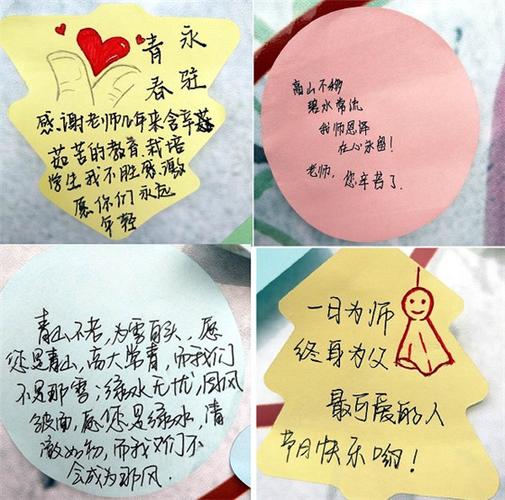 青春
永驻
感谢老师几年来含辛
茹苦的教育、栽培
学生我不胜感激
愿你们永远
年轻
高山不移
碧水常流
我师恩泽
在心永留!
老师,您辛苦了.
青山不老,为雪白头,愿
您是青山,高大常青,而我们
不是那雪;绿水无忧,因风
皱面,愿您是绿水,清
澈如初,而我们不
会成为那风.
一日为师
终身为父
最可爱的人
节日快乐哟!